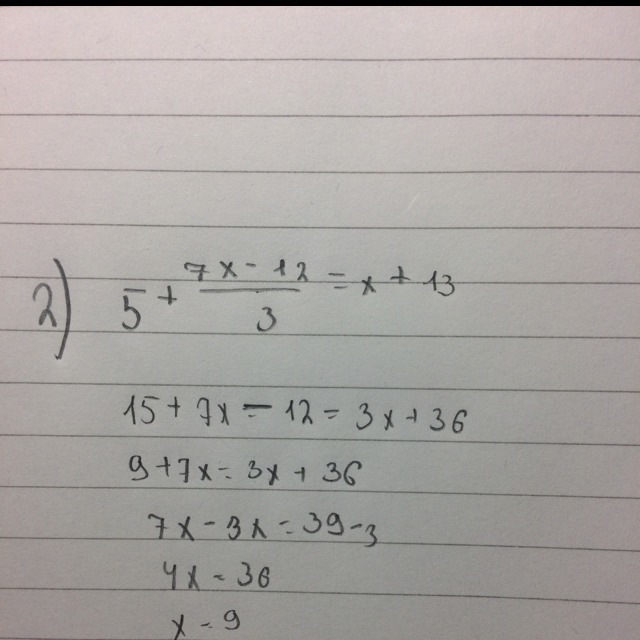 2) 5 + (7x - 12)/3 = x + 13
15 + 7x - 12 = 3x + 36
9 + 7x = 3x + 36
7x - 3x = 39 - 3
4x = 36
x = 9